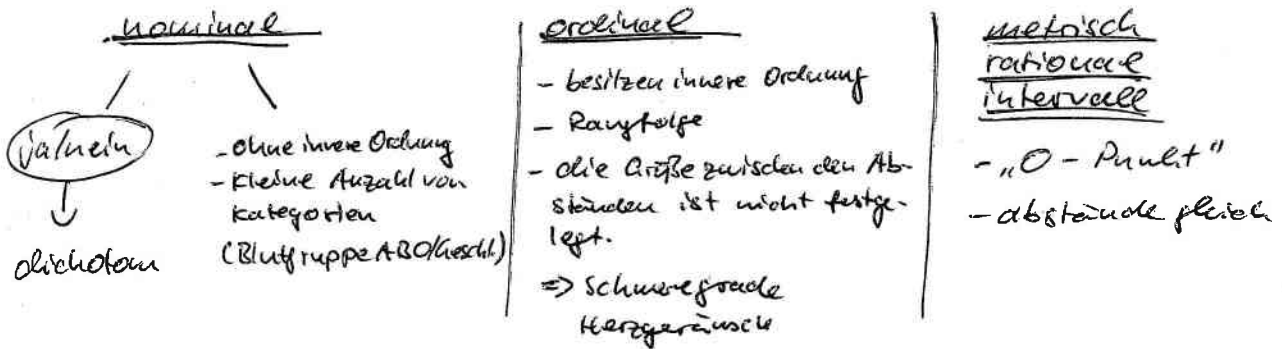 nominal
ja/nein
dichotom
- ohne innere Ordnung
- kleine Anzahl von
Kategorien
(Blutgruppe ABO/Geschl.)
ordinal
- besitzen innere Ordnung
- Rangfolge
- die Größe zwischen den Ab-
ständen ist nicht festge-
legt.
=> Schweregrade
Herzgeräusch
metrisch
rational
intervall
- „0 - Punkt"
- abstände gleich